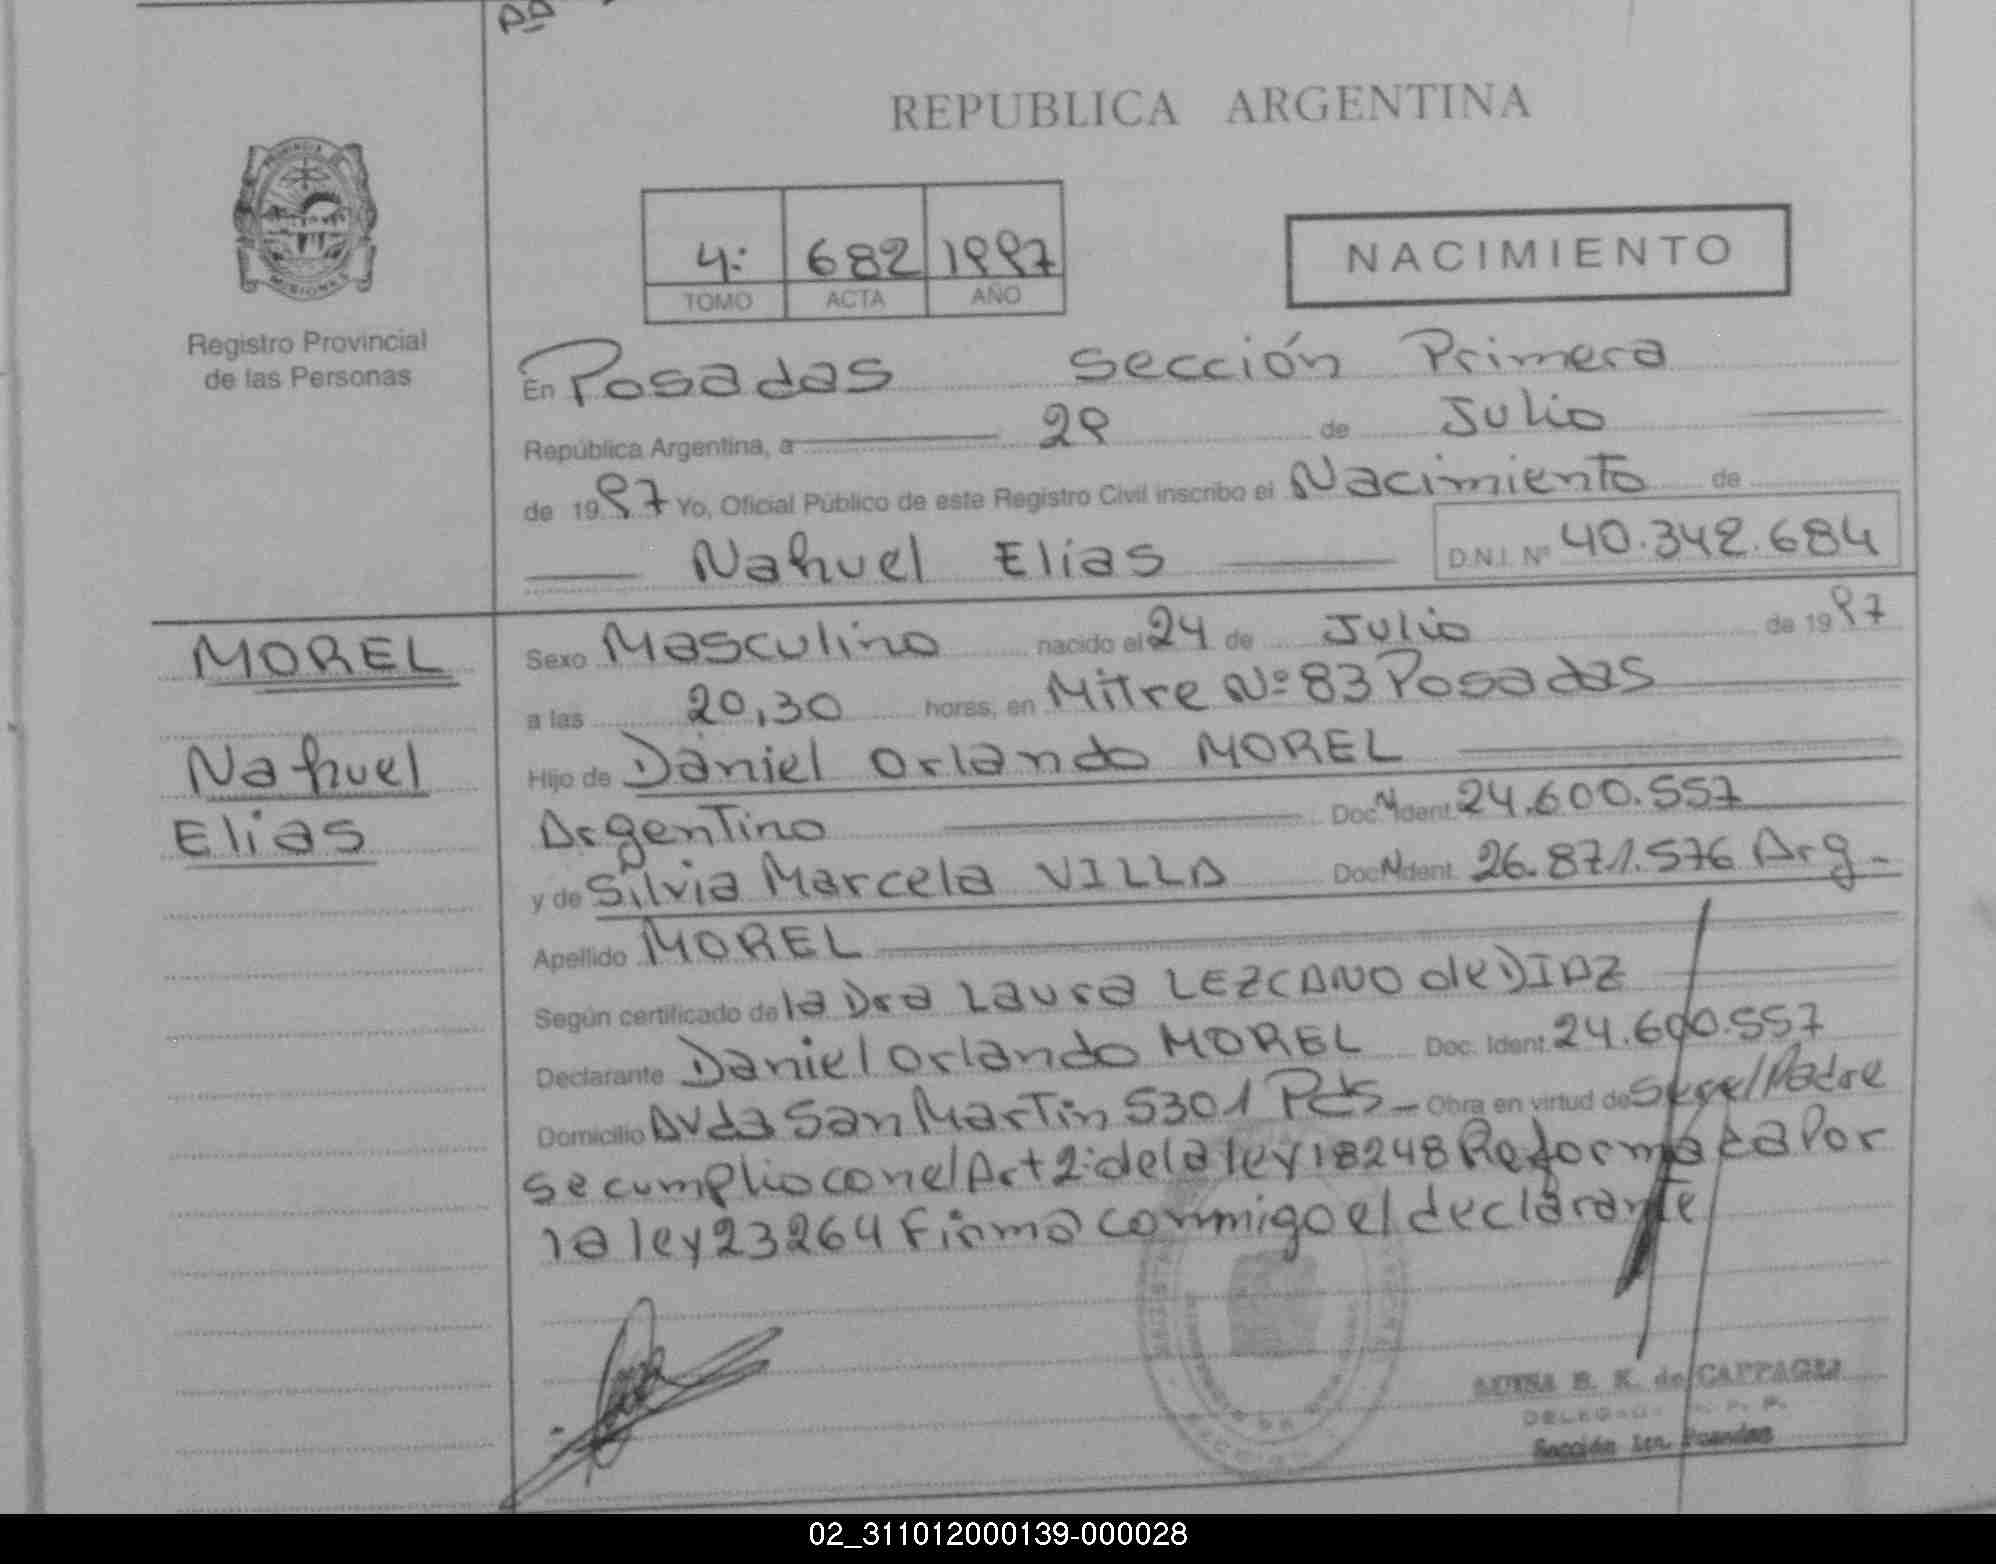 REPUBLICA ARGENTINA
PROVINCIA DE
MISIONES
Registro Provincial
de las Personas
4: 682 1997
TOMO ACTA AÑO
NACIMIENTO
En Posadas Sección Primera
República Argentina, a 29 de Julio
de 1997 Yo, Oficial Público de este Registro Civil inscribo el Nacimiento de
Nahuel Elías D.N.I. Nº 40.342.684
MOREL
Nahuel
Elias
Sexo Masculino nacido el 24 de Julio de 1997
a las 20,30 horas, en Mitre Nº 83 Posadas
Hijo de Daniel Orlando MOREL
Argentino Doc. N Ident. 24.600.557
y de Silvia Marcela VILLA Doc. N Ident. 26.871.576 Arg.
Apellido MOREL
Según certificado de la Dra Laura LEZCANO de DIAZ
Declarante Daniel Orlando MOREL Doc. Ident. 24.600.557
Domicilio AVda San Martin 5301 Pds Obra en virtud de Ser el Padre
se cumplio con el Art 2: de la ley 18248 Reformada Por
la ley 23264 Firma conmigo el declarante
B. K. de CAPPAGLI
Sección 1ra. Posadas
02_311012000139-000028